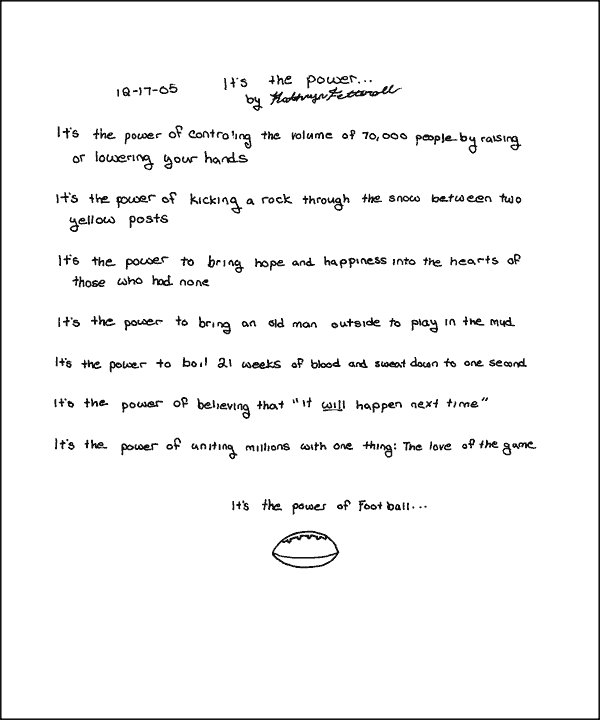 It's the power...
12-17-05
by Kathryn
It's the power of controling the volume of 70,000 people by raising
or lowering your hands
It's the power of kicking a rock through the snow between two
yellow posts
It's the power to bring hope and happiness into the hearts of
those who had none
It's the power to bring an old man outside to play in the mud
It's the power to boil 21 weeks of blood and sweat down to one second
It's the power of believing that "it will happen next time"
It's the power of uniting millions with one thing: The love of the game
It's the power of Football...